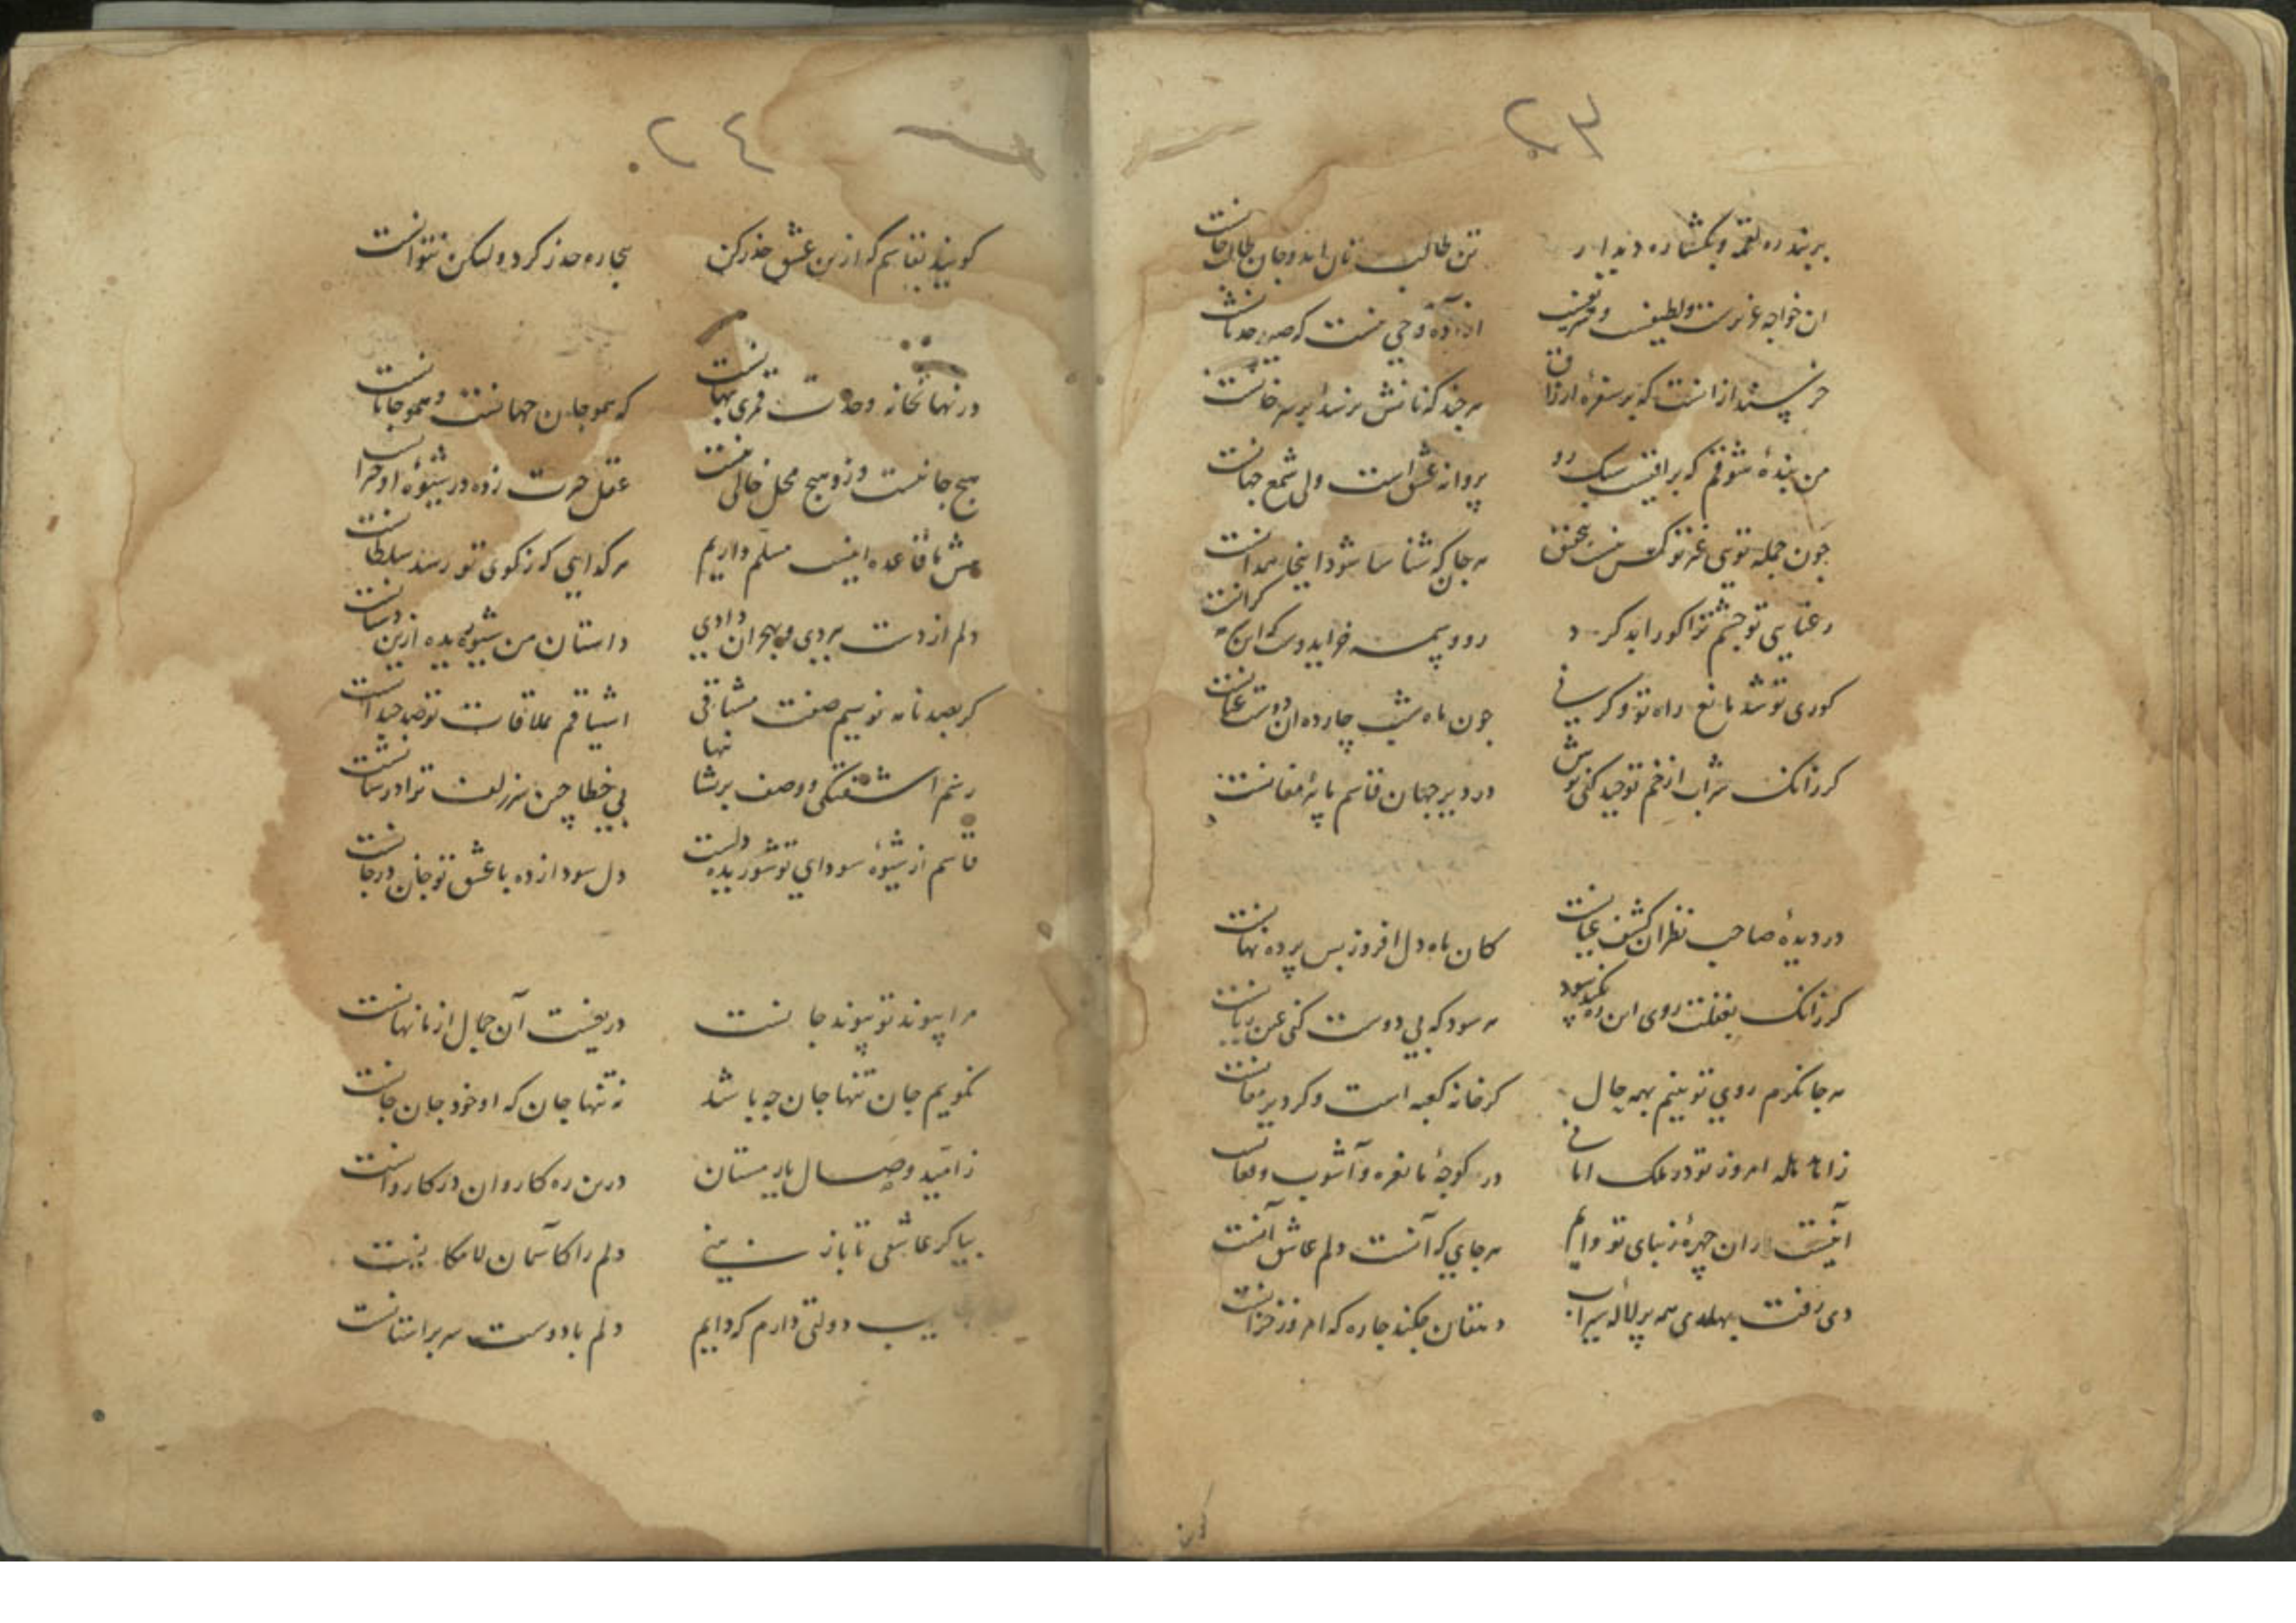 ٢٣
بربند ره لقمه و بکشا ره دیدار تن طالب نان امد و جان طالب جانست
ان خواجه عزیزست و لطیفست و شریفست
خرسند ازانست که بر سفرهٔ ارزاق هر چند که نانش برسد بر سر خانست
من بندهٔ شوقم که براقیست سبک رو پروانه عشق است ولی شمع جهانست
جون جمله تویی غیر تو کس نیست بتحقیق هر جان که شناسا شود اینجا همه دانست
رعنایی تو جشم ترا کور ابد کرد رو و سمه خواید وست که این کرانست
کوری تو شد مانع راه تو و کر نی جون ماه شب چارده ان دوست عیانست
کر زانک شراب از خم توحید کنی نوش در دیر جهان قاسم ما پیر مغانست
در دیدهٔ صاحب نظران کشف عیانست کان ماه دل افروز پس پرده نهانست
کر زانک بغفلت روی این ره نکند سود هر سود که بی دوست کنی عین زیانست
هر جا نکرم روی تو بینم بهمه حال کر خانه کعبه است و کر دیر مغانست
زانها که امروز تو در ملک امانی در کوجهٔ ما نعره و آشوب و فغانست
آنیست دران چهرهٔ زیبای تو دایم هر جایی که آنست دلم عاشق آنست
دی رفت بهلدی همه بر لالهٔ سیراب دهقان جکند جاره که امروز خزانست
٢٤
کویند بقاسم که ازین عشق حذر کن بیجاره حذر کرد ولیکن نتوانست
در نهانخانه وحدت قمری پنهانست که همو جان جهانست و همو جانانست
هیج جا نیست وزو هیج محل خالی نیست عقل حیرت زده در شیوهٔ او حیرانست
عشق ما قاعده اینست مسلم داریم هر کدایی که ز کوی تو رسد سلطانست
دلم از دست بردی و بهجران دادی داستان من شوریده ازین دستانست
کر بصد نامه نویسم صفت مشتاقی اشتیاقم بملاقات تو صد چندانست
رنم اشفتکی و وصف پریشانیها بی خطا چین سر زلف ترا در شانست
قاسم از شیوهٔ سودای تو شوریده دلست دل سودا زده با عشق تو جان در جانست
مرا پیوند تو پیوند جانست دریغست آن جمال از ما نهانست
نکویم جان تنها جان جه باشد نه تنها جان که او خود جان جانست
ز امید وصال یار مستان درین ره کاروان در کاروانست
بیا کر عاشقی تا باز بینی دلم را کاسمان لامکانیست
دولتی دارم که دایم دلم با دوست سر بر آستانست